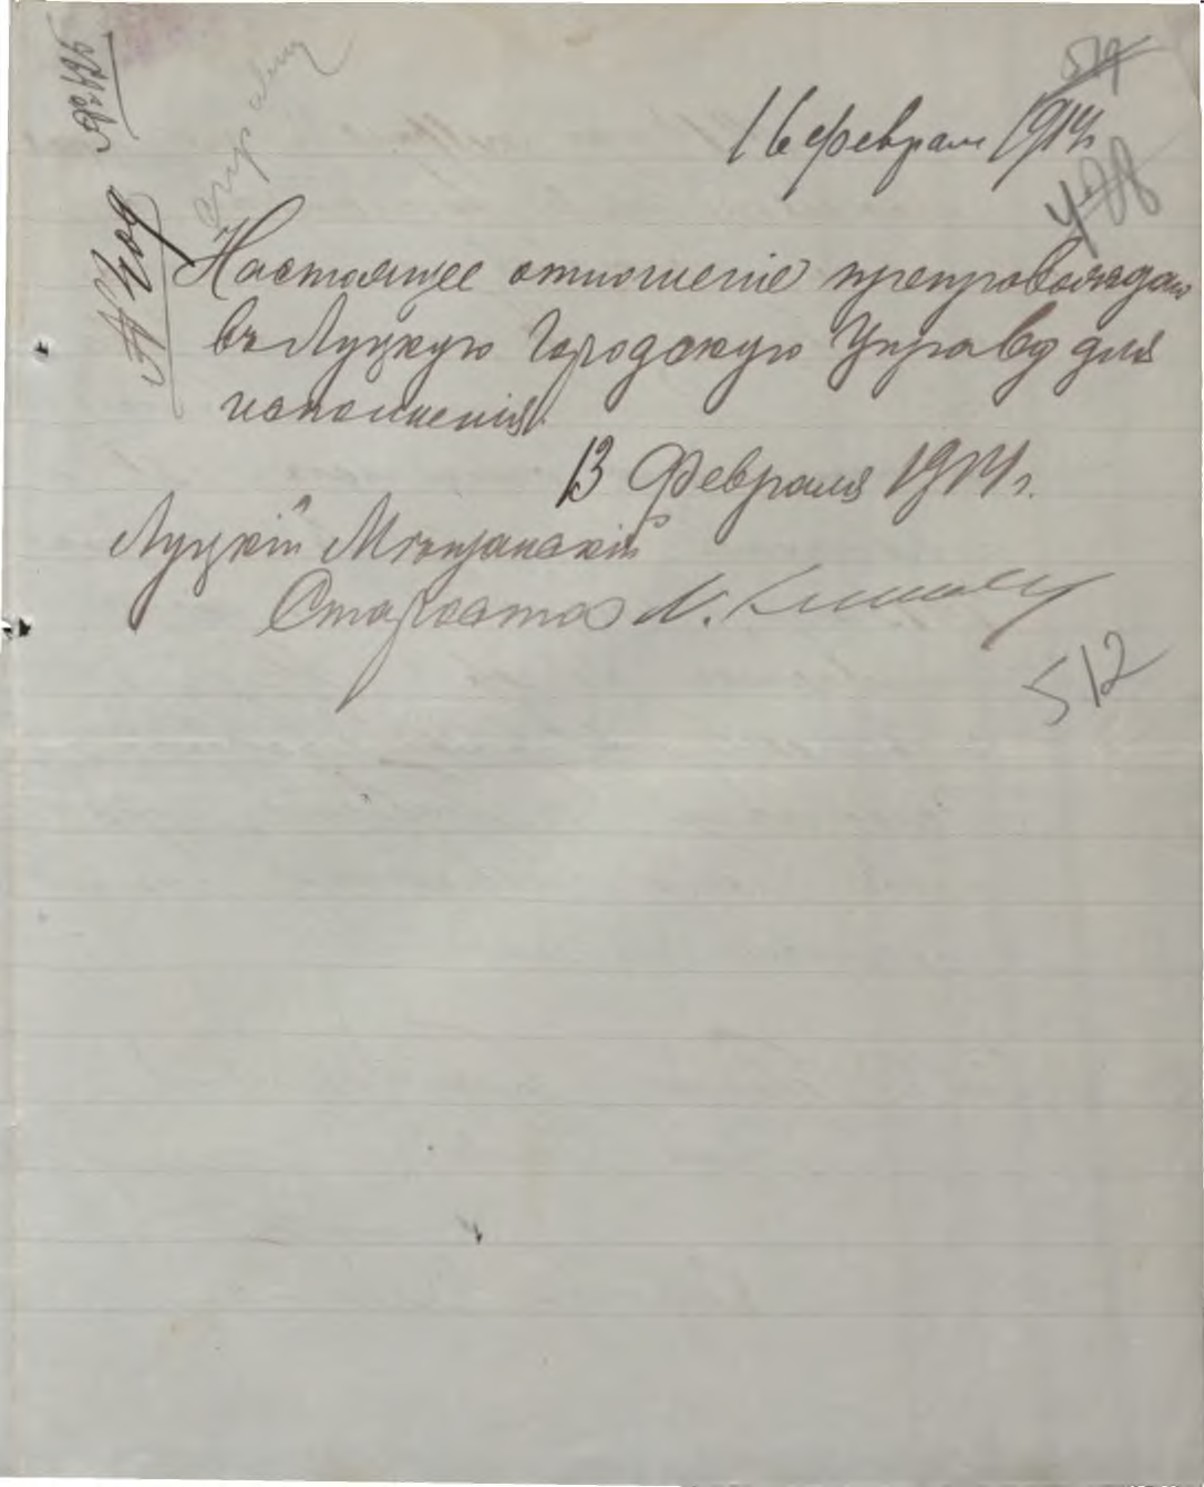 519
16 Февраля 1914 г
Настоящее отношеніе препровождаю
въ Луцкую Городскую Управу для
исполненія.
13 Февраля 1914 г.
Луцкій Мѣщанскій
Староста
512